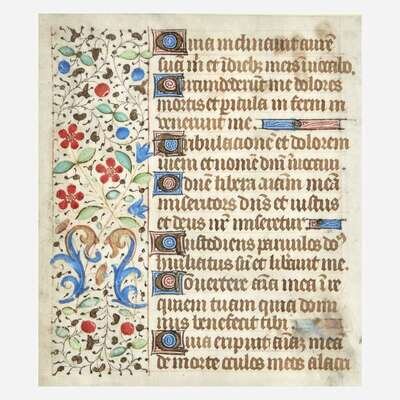 Quia inclinauit aurē
suā m̄ et ī dieb; meis īuocabo.
Circundederūt me dolores
mortis et picula īn ferni in
uenerunt me.
Tribulacionē et dolorem
īueni et nomē dn̄i īuocaui
O dn̄e libera aīam meā
misericors dn̄s et iustus
et deus nr̄ miseretur.
Custodiens paruulos do
miliatus sū et liberauit me.
Conuertere aīa mea ī re
quiem tuam quia domi
nus benefecit tibi.
Quia eripuit aīaz meaz
de morte oculos meos a lacri